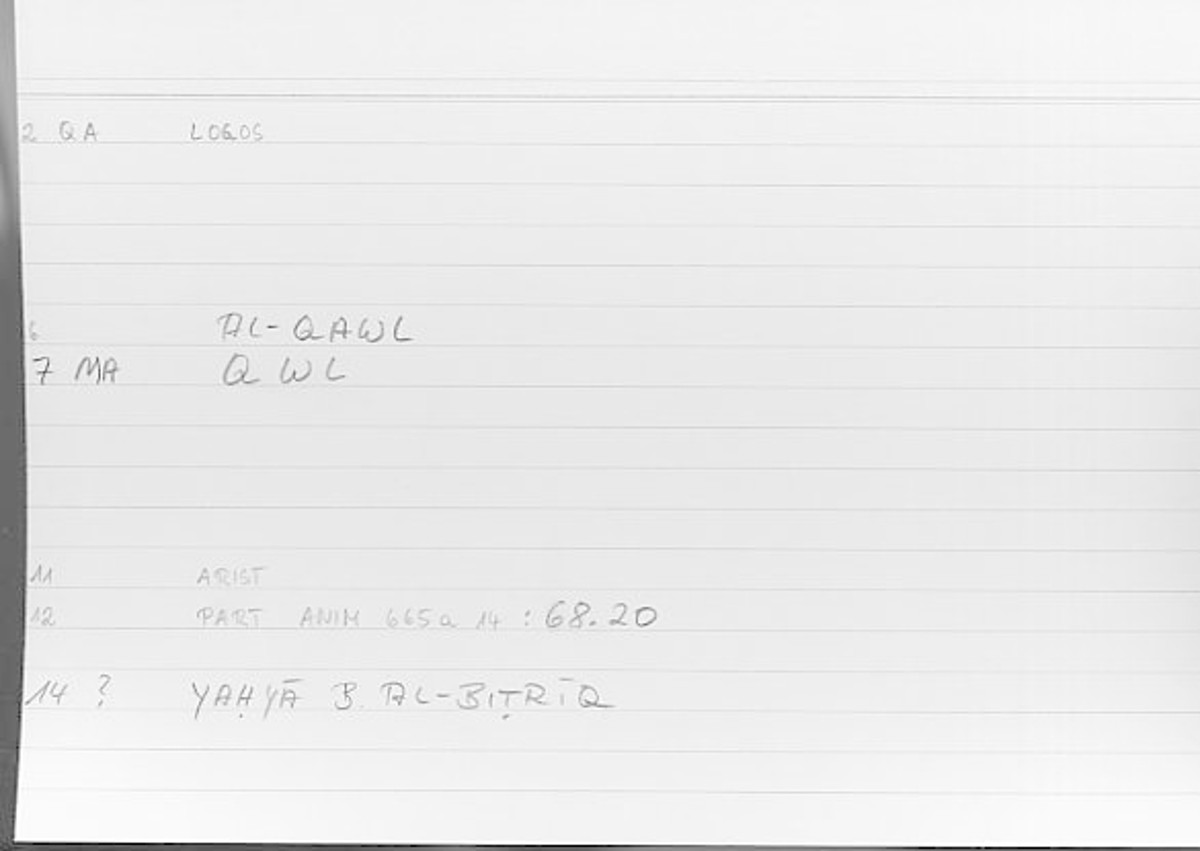 2 QA LOGOS
6 AL-QAWL
7 MA QWL
11 ARIST
12 PART ANIM 665a 14 : 68.20
14 ? YAḤYĀ B. AL-BIṬRĪQ